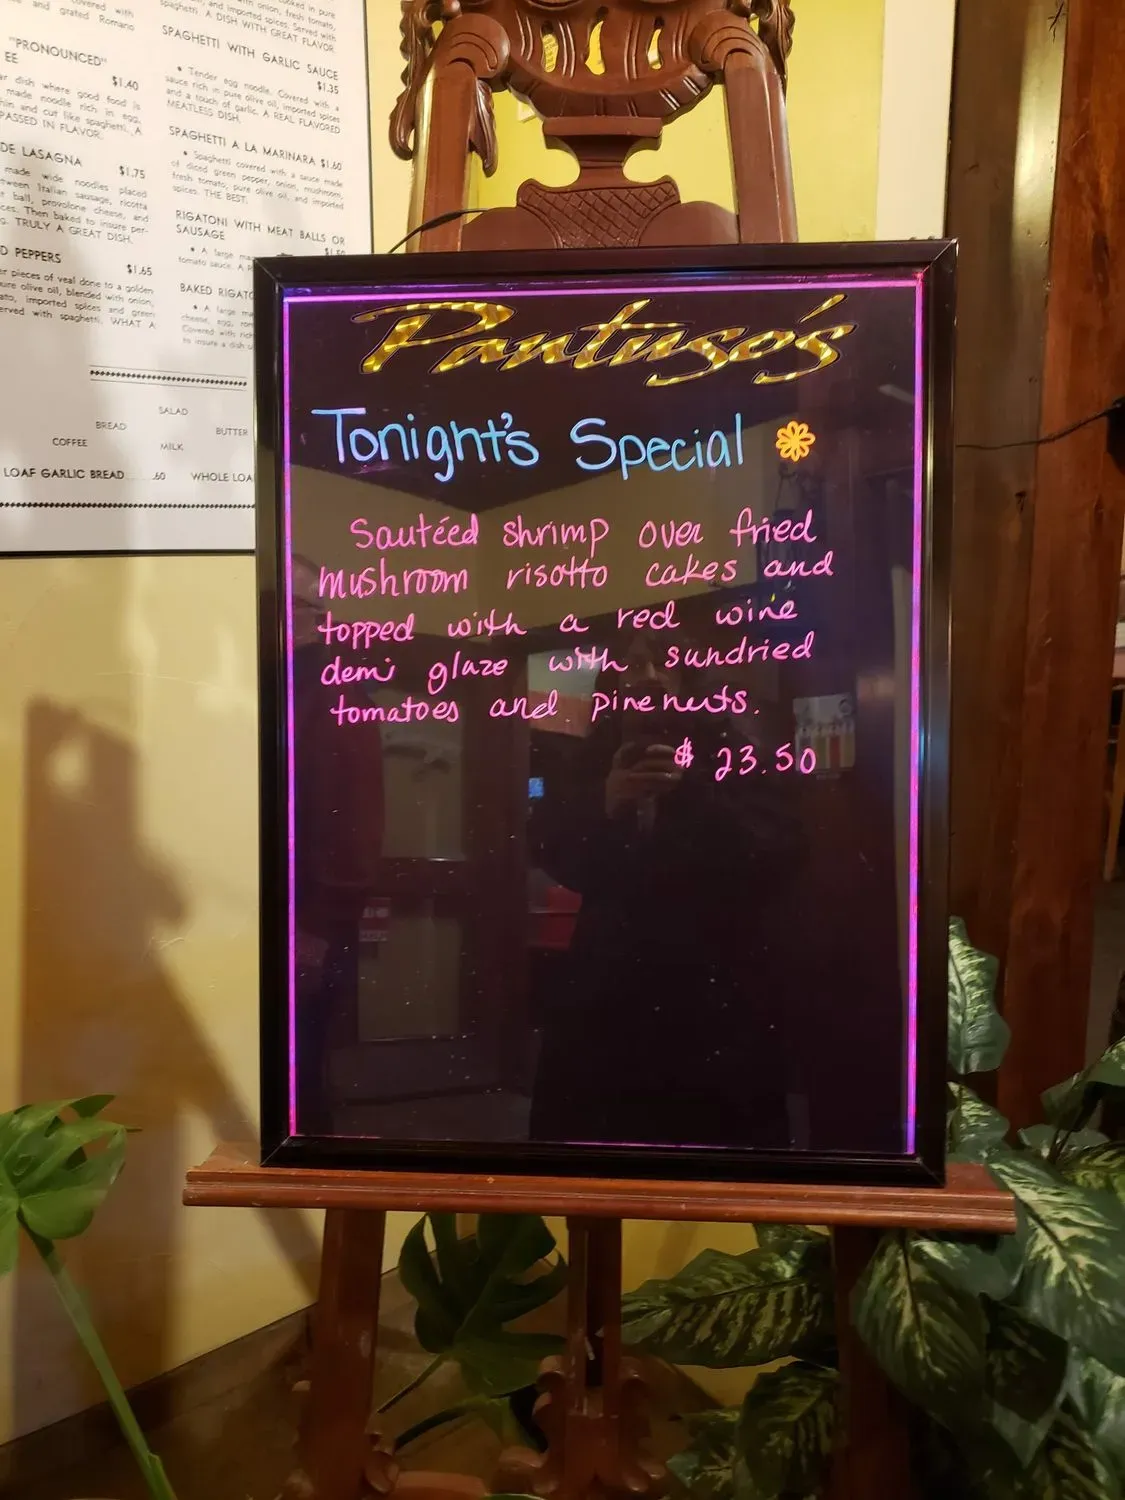 covered with
and grated Romano
"PRONOUNCED"
EE
$1.40
dish where good food is
made noodle rich in egg,
thin and cut like spaghetti. A
PASSED IN FLAVOR.
DE LASAGNA
$1.75
made wide noodles placed
Italian sausage, ricotta
ball, provolone cheese, and
Then baked to insure per-
TRULY A GREAT DISH.
PEPPERS
$1.65
pieces of veal done to a golden
olive oil, blended with onion,
imported spices and green
served with spaghetti. WHAT A
cooked in pure
with onion, fresh tomato,
and imported spices. Served with
spaghetti. A DISH WITH GREAT FLAVOR.
SPAGHETTI WITH GARLIC SAUCE
$1.35
• Tender egg noodle. Covered with a
sauce rich in pure olive oil, imported spices
and a touch of garlic. A REAL FLAVORED
MEATLESS DISH.
SPAGHETTI A LA MARINARA $1.60
• Spaghetti covered with a sauce made
of diced green pepper, onion, mushroom,
fresh tomato, pure olive oil, and imported
spices. THE BEST.
RIGATONI WITH MEAT BALLS OR
SAUSAGE
• A large
tomato sauce. A
BAKED
• A large
cheese, egg,
Covered with
to insure a dish
SALAD
BREAD
BUTTER
COFFEE
MILK
LOAF GARLIC BREAD .60 WHOLE
Pantuso's
Tonight's Special
Sautéed shrimp over fried
mushroom risotto cakes and
topped with a red wine
demi glaze with sundried
tomatoes and pine nuts.
$ 23.50